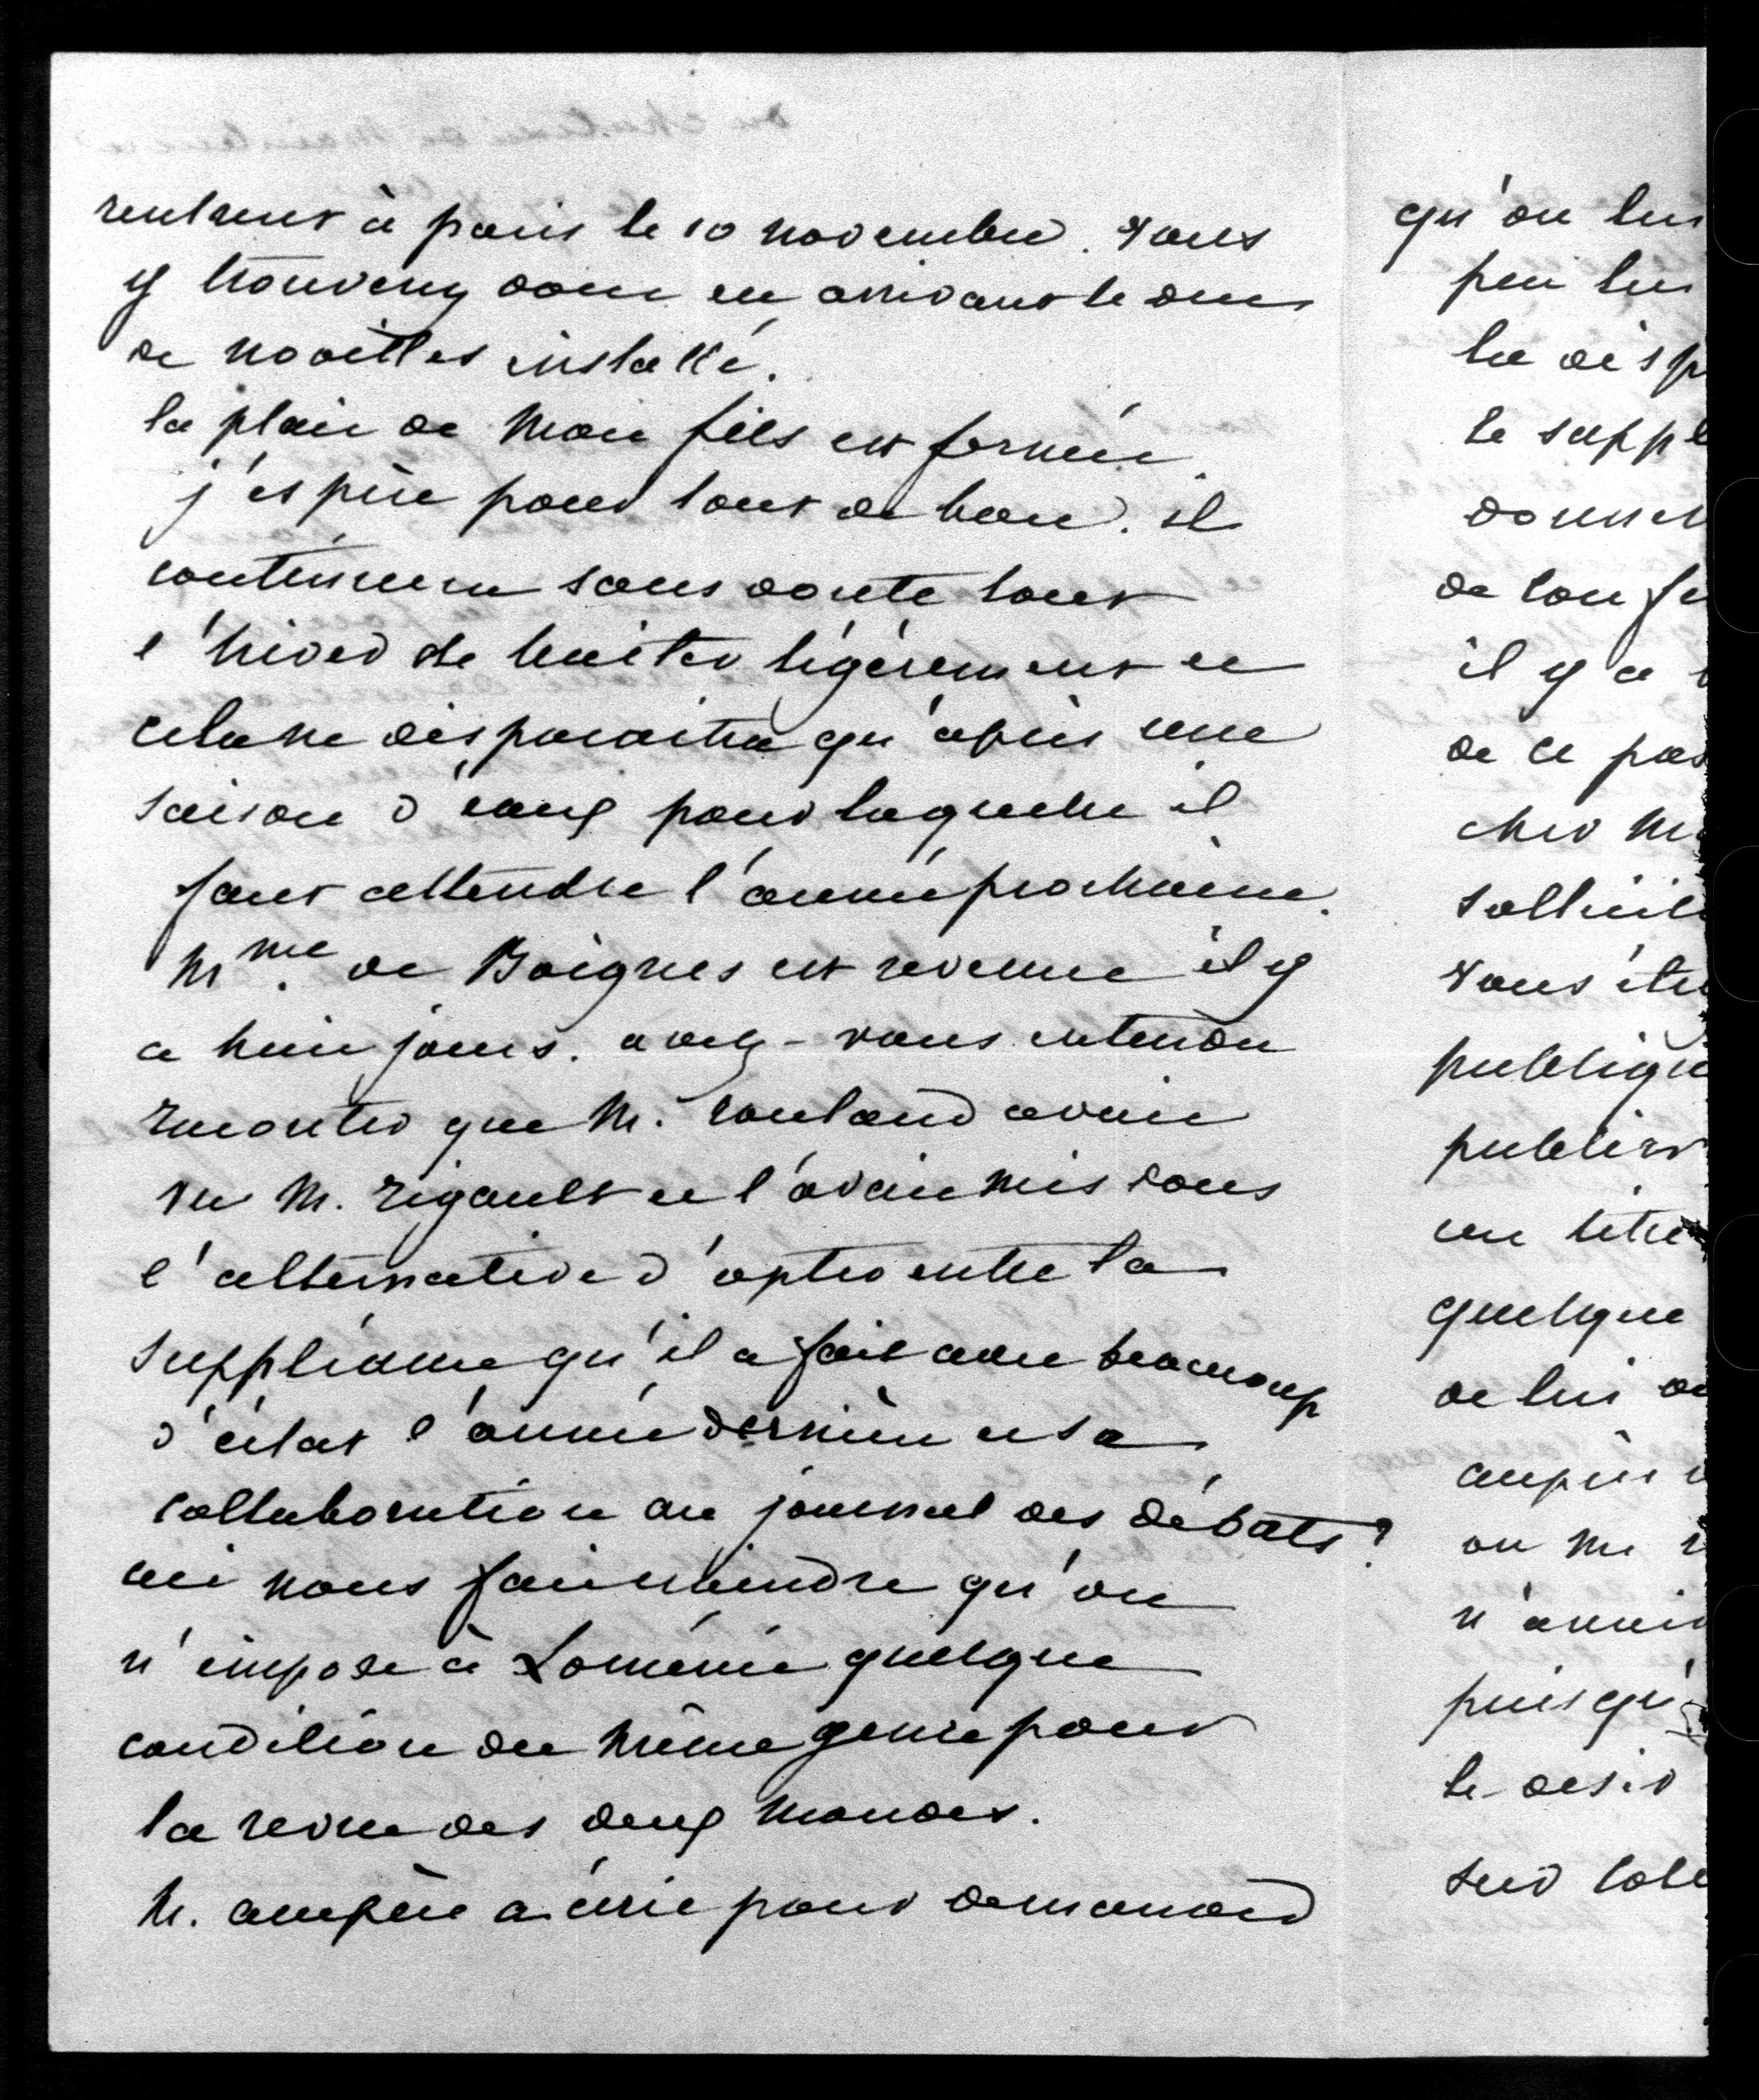 rentrent à paris le 10 novembre. vous
y trouverez donc en arrivant le duc
de noailles installé.
la plaie de mon fils est fermée,
j'espère pour tout de bon. il
continuera sans doute tout
l'hiver de boiter légèrement et
cela ne disparaitra qu'après une
saison d'eaux pour laquelle il
faut attendre l'année prochaine.
Mme. de Boignes est revenue il y
a huit jours. avez-vous entendu
raconter que M. rouland avait
vu M. rigault et l'avait mis dans
l'alternative d'opter entre la
suppléance qu'il a faite avec beaucoup
d'éclat l'année dernière et sa
collaboration au journal des débats?
ceci nous fait craindre qu'on
n'impose à Loménie quelque
condition du même genre pour
la revue des deux mondes.
M. ampère a écrit pour demander
qu'on lui
peu lui
la disp
le suppl
donner
de son fr
il y a
de ce pas
cher M.
sollicit
vous êtes
publiqu
publier
un titre
quelque
de lui
auprès
on me
n'avait
puisqu'
le désir
sur